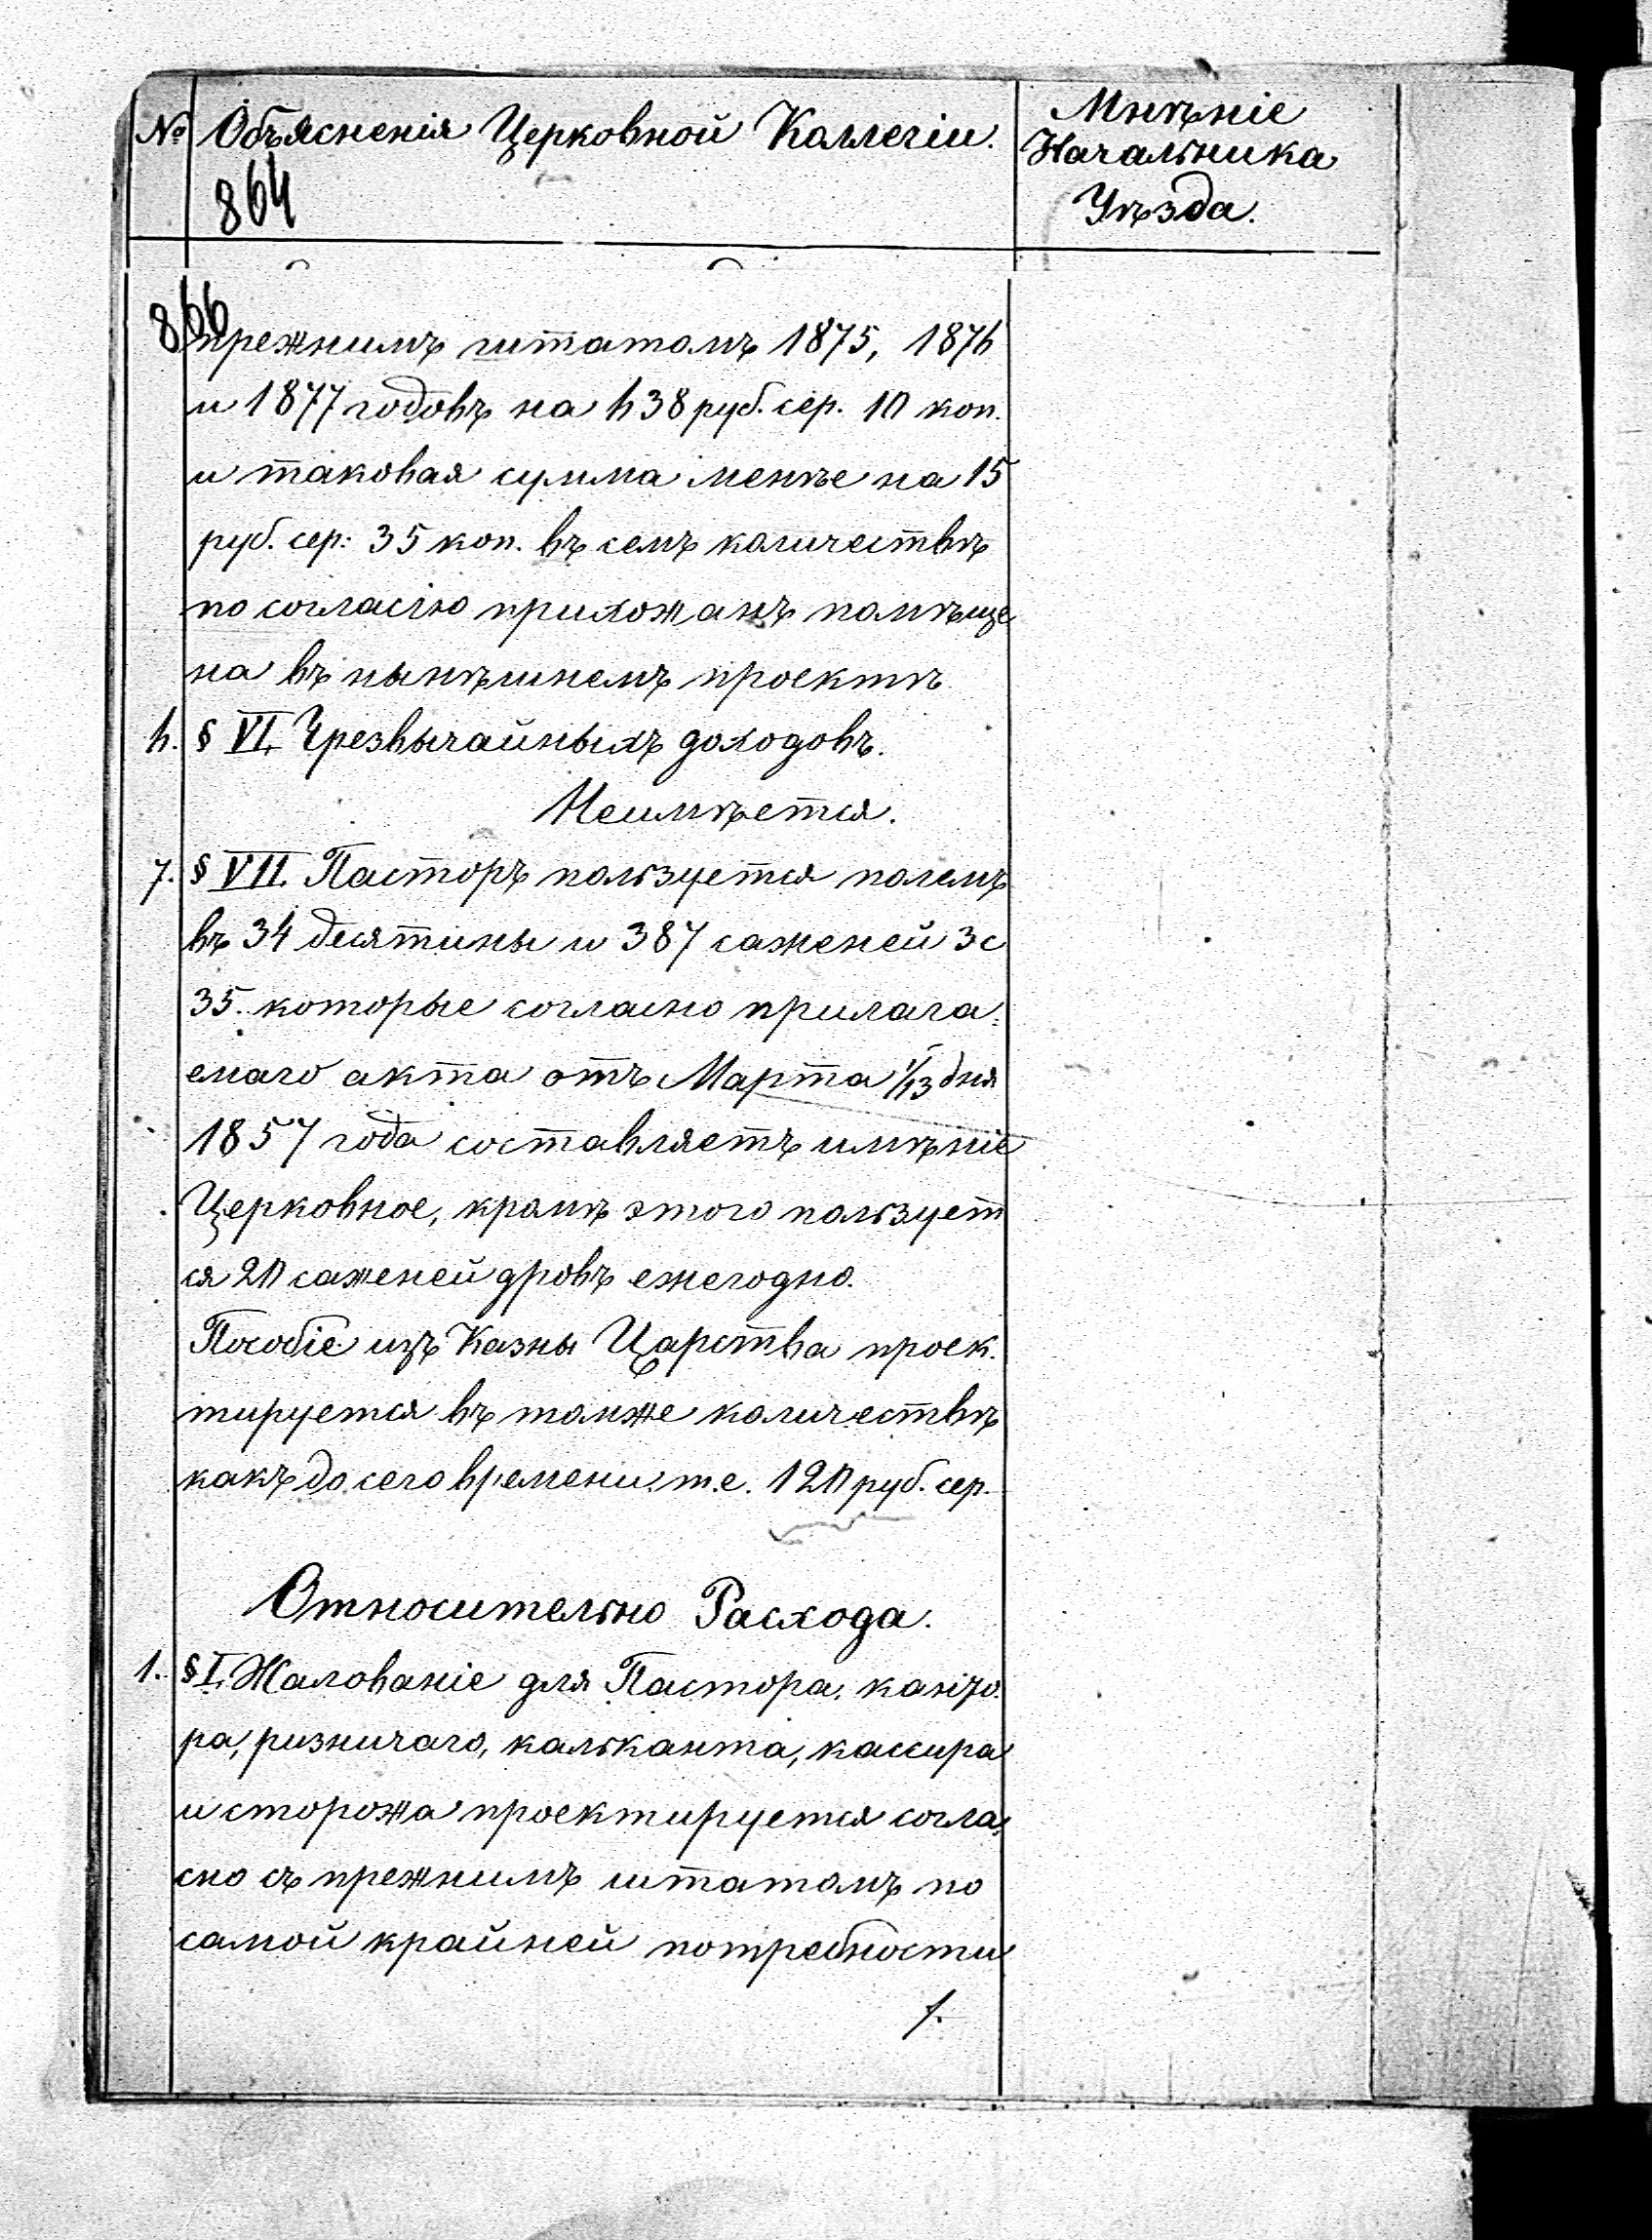 № Объясненія Церковной Коллегіи. Мнѣніе
Начальника
Уѣзда.
864
866
прежнимъ штатомъ 1875, 1876
и 1877 годовъ на 638 руб. сер. 10 коп.
и таковая сумма менѣе на 15
руб. сер: 35 коп. въ семъ количествѣ
по согласію прихожанъ помѣще
на въ нынѣшнемъ проектѣ
6. § VI. Чрезвычайныхъ доходовъ.
Неимѣется.
7. § VII. Пасторъ пользуется полемъ
въ 34 десятины и 387 саженей 3с
35. которые согласно прилага:
емаго акта отъ Марта 1/13 дня
1857 года составляетъ имѣніе
Церковное, кромѣ этого пользует
ся 20 саженей дровъ ежегодно.
Пособіе изъ Казны Царства проек.
тируется въ томже количествѣ
какъ до сего времени т.е. 120 руб. сер.
Относительно Расхода.
1. § I. Жалованіе для Пастора, канто.
ра, ризничаго, кальканта, кассира
и сторожа проектируется согла:
сно съ прежнимъ штатомъ по
самой крайней потребности
/.